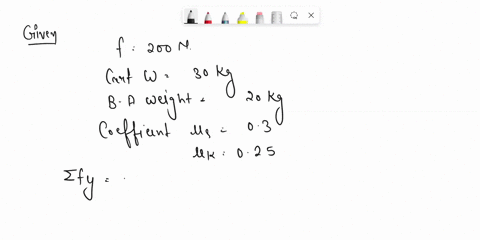 Given
f : 200 N.
Cart W = 30 kg
B.A weight = 20 kg
Coefficient μs = 0.3
μk = 0.25
Σfy =